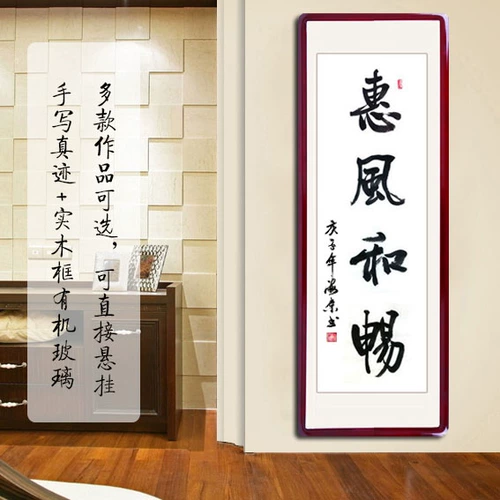 惠風和暢
庚子年
多款作品可选，可直接悬挂
手写真迹+实木框有机玻璃